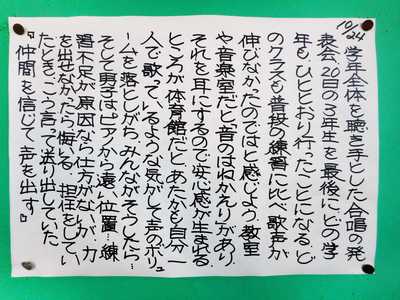 10/24
学年全体を聴き手とした合唱の発
表会、20日の3年生を最後にどの学
年も、ひととおり行ったことになる。ど
のクラスも普段の練習に比べ、歌声が
伸びなかったのではと感じよう。教室
や音楽室だと、音のはねかえりがあり、
それを耳にするので安心感が生まれる。
ところが体育館だと、あたかも自分一
人で歌っているような気がして声のボリュ
ームを落としがち。みんながそうしたら…
そして男子はピアノから遠い位置…練
習不足が原因なら仕方がないが、力
を出せなかったら悔しい。担任をしてい
たとき、こう言って送り出していた
『仲間を信じて声を出す』